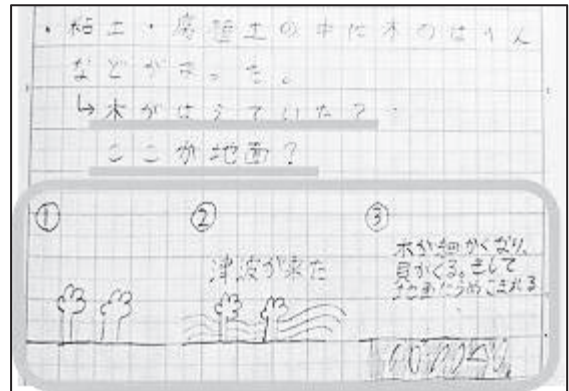 ・粘土・腐植土の中に木のはへん
などが
↳木がはえていた?
ここが地面?
① ② ③
津波が来た
木が細かくなり、
貝がくる。そして
地面にうめこまれる